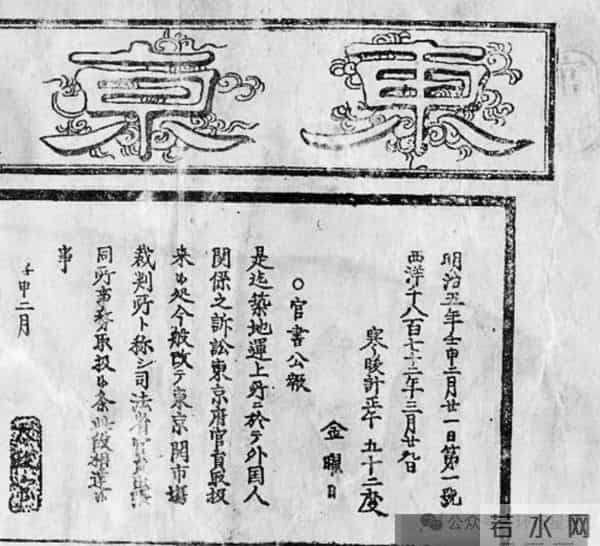 東京
明治五年壬申二月廿一日第一號
西洋千八百七十二年三月廿九日
寒暖計正午 五十二度
金曜日
〇官書公報
是迄築地運上所ニ於テ外国人
関係之訴訟東京府官員取扱
来候処今般改テ東京開市場
裁判所ト称シ司法省官員出張
同所事務取扱候条此段相達候
事
壬申二月
公众号
若水网